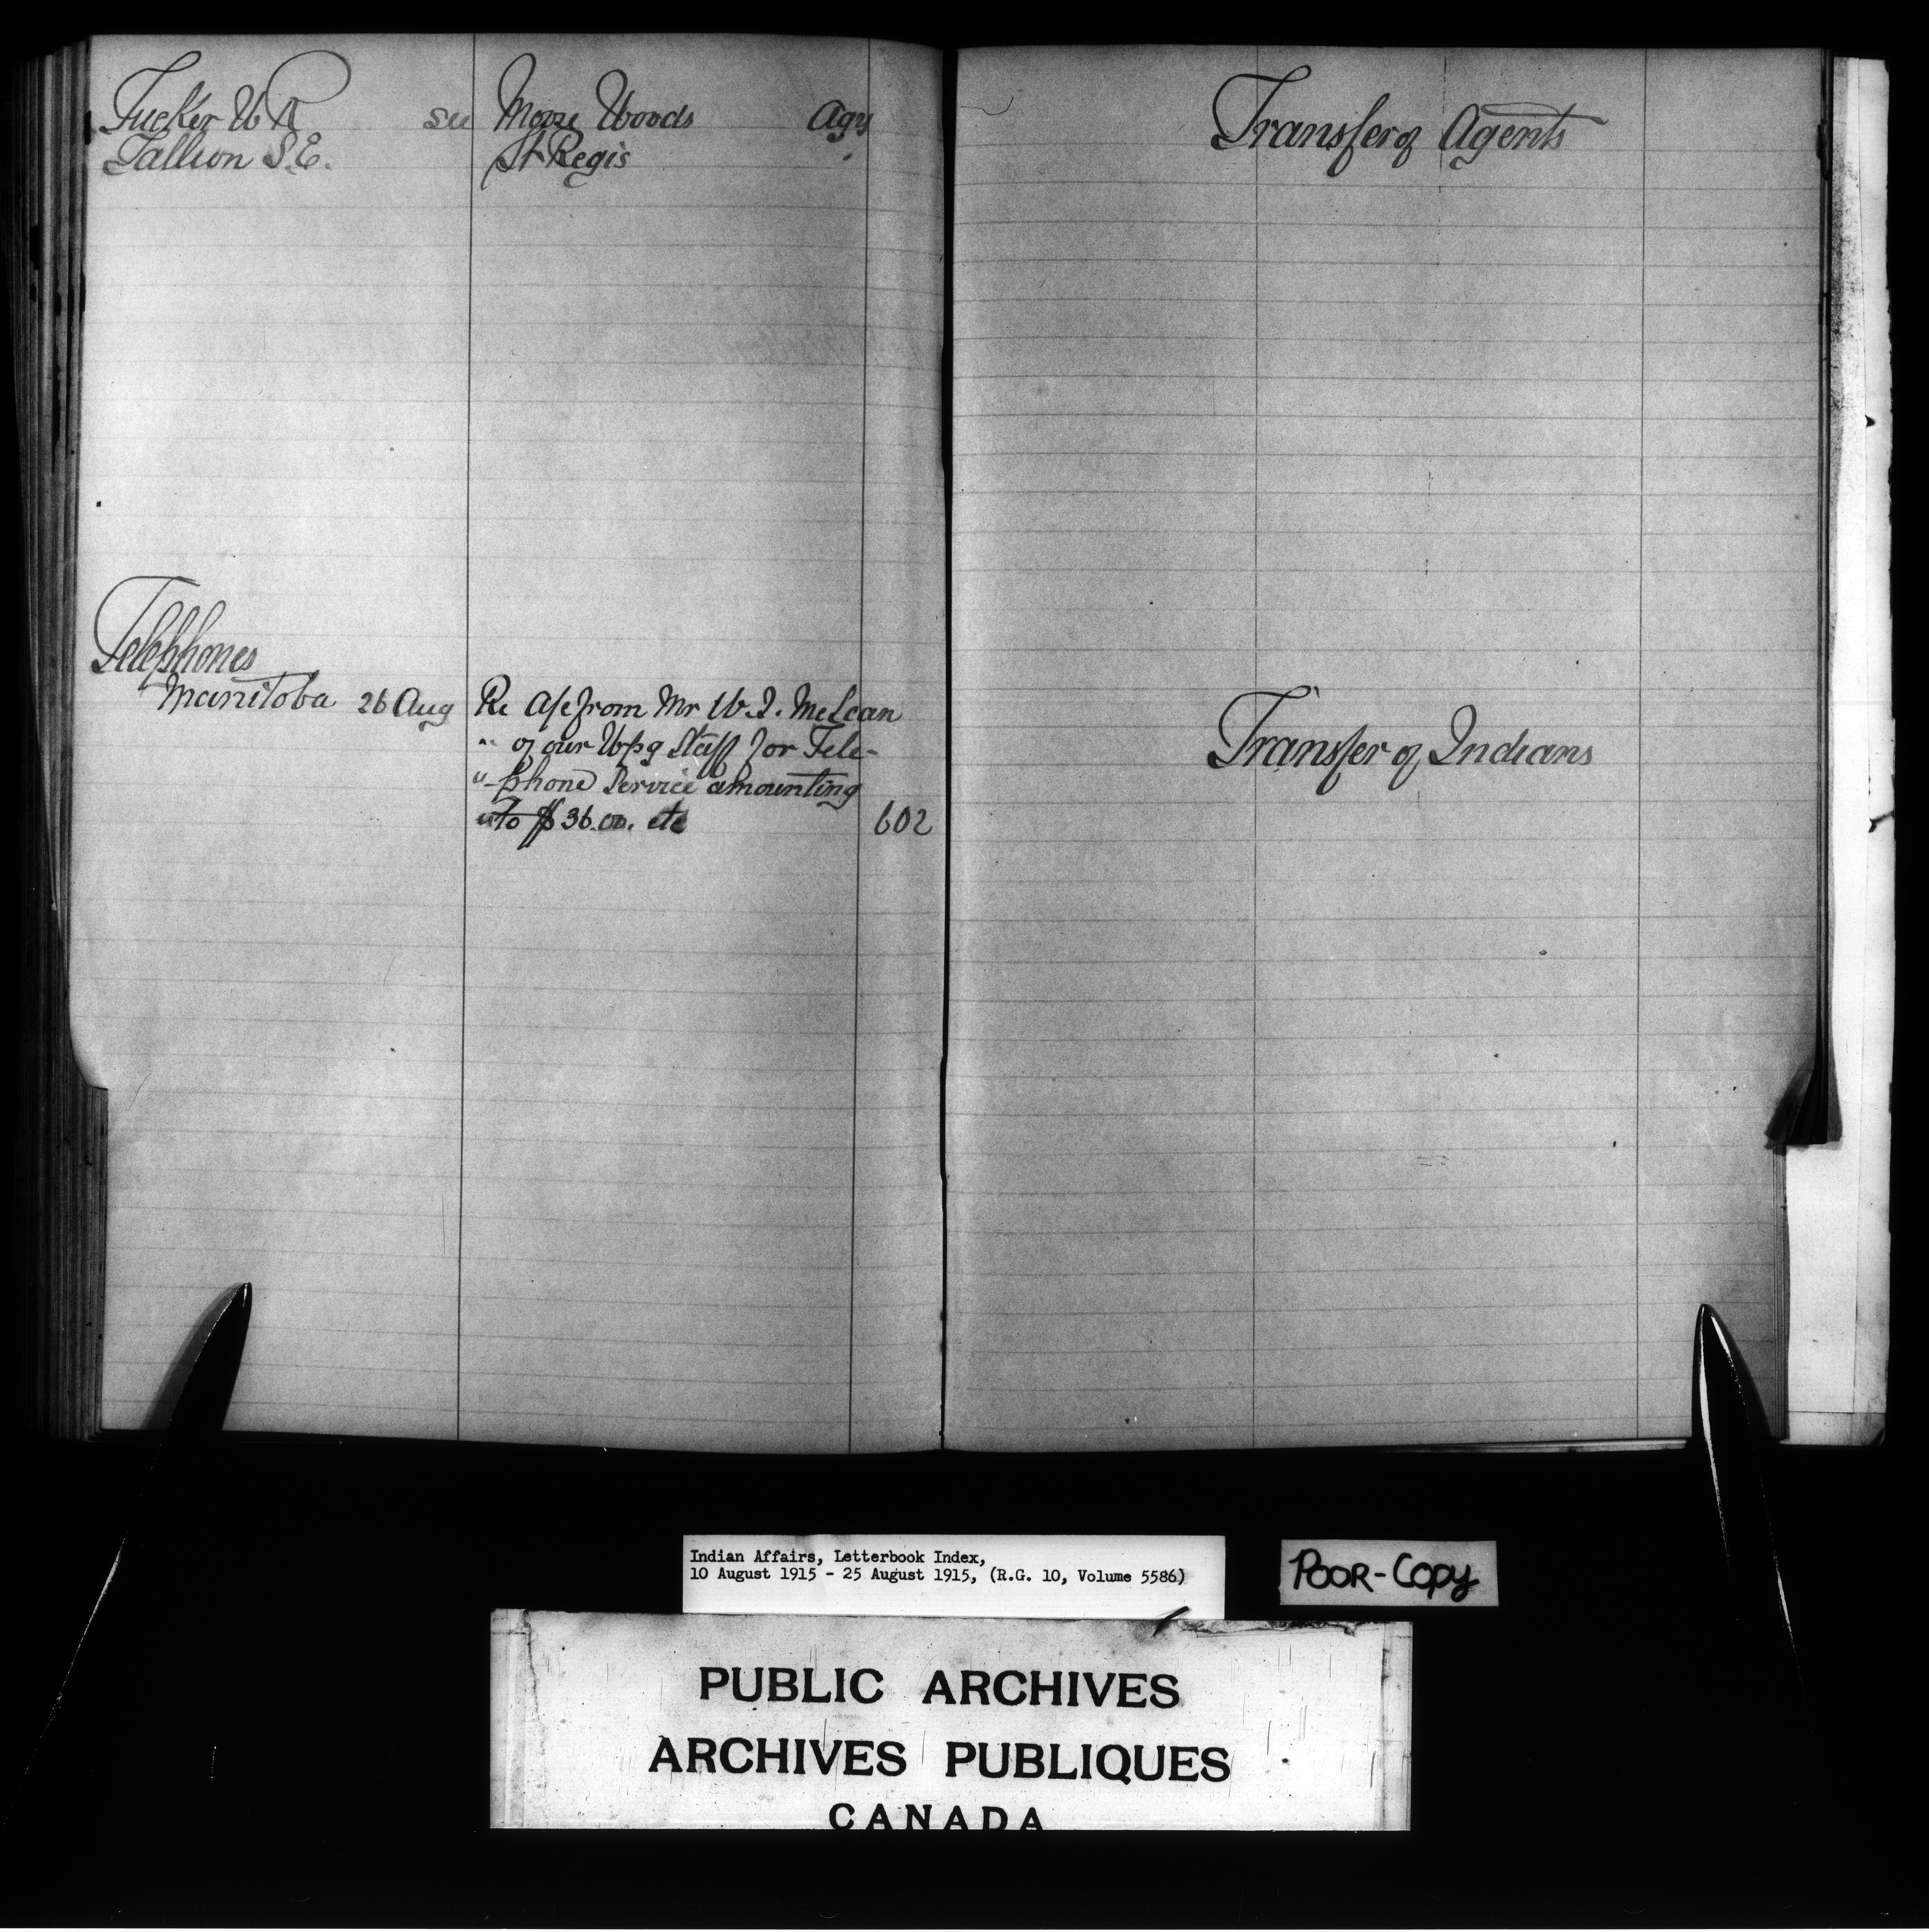 Tucker W R see Moose Woods Agy
Tallion S.E. St Regis "
Telephones
Manitoba 26 Aug Re A/c from Mr W.J. McLean
" of our Wpg Staff for Tele-
"-phone Service amounting
" to $36.00. etc 602
Transfer of Agents
Transfer of Indians
Indian Affairs, Letterbook Index,
10 August 1915 - 25 August 1915, (R.G. 10, Volume 5586)
POOR-COPY
PUBLIC ARCHIVES
ARCHIVES PUBLIQUES
CANADA